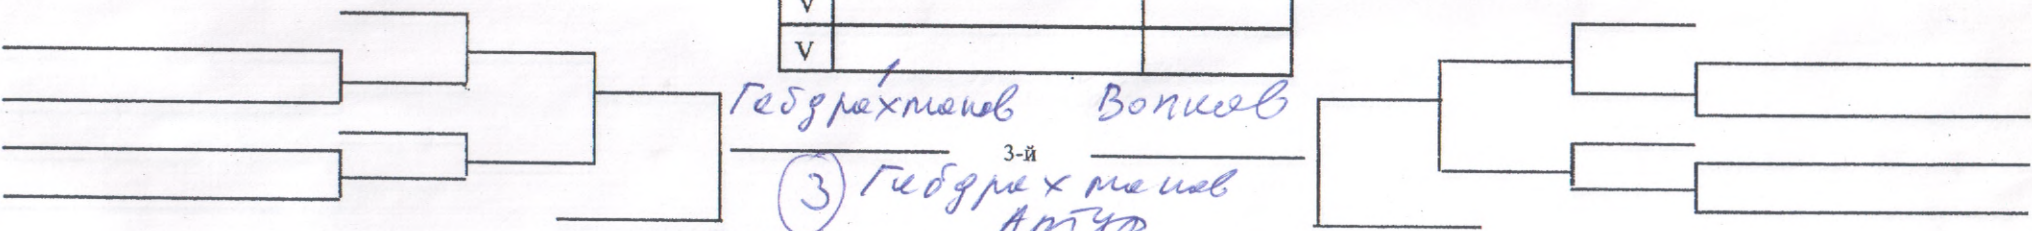 V
V
Габдрахманов Волков
3-й
3 Габдрахманов
Артур